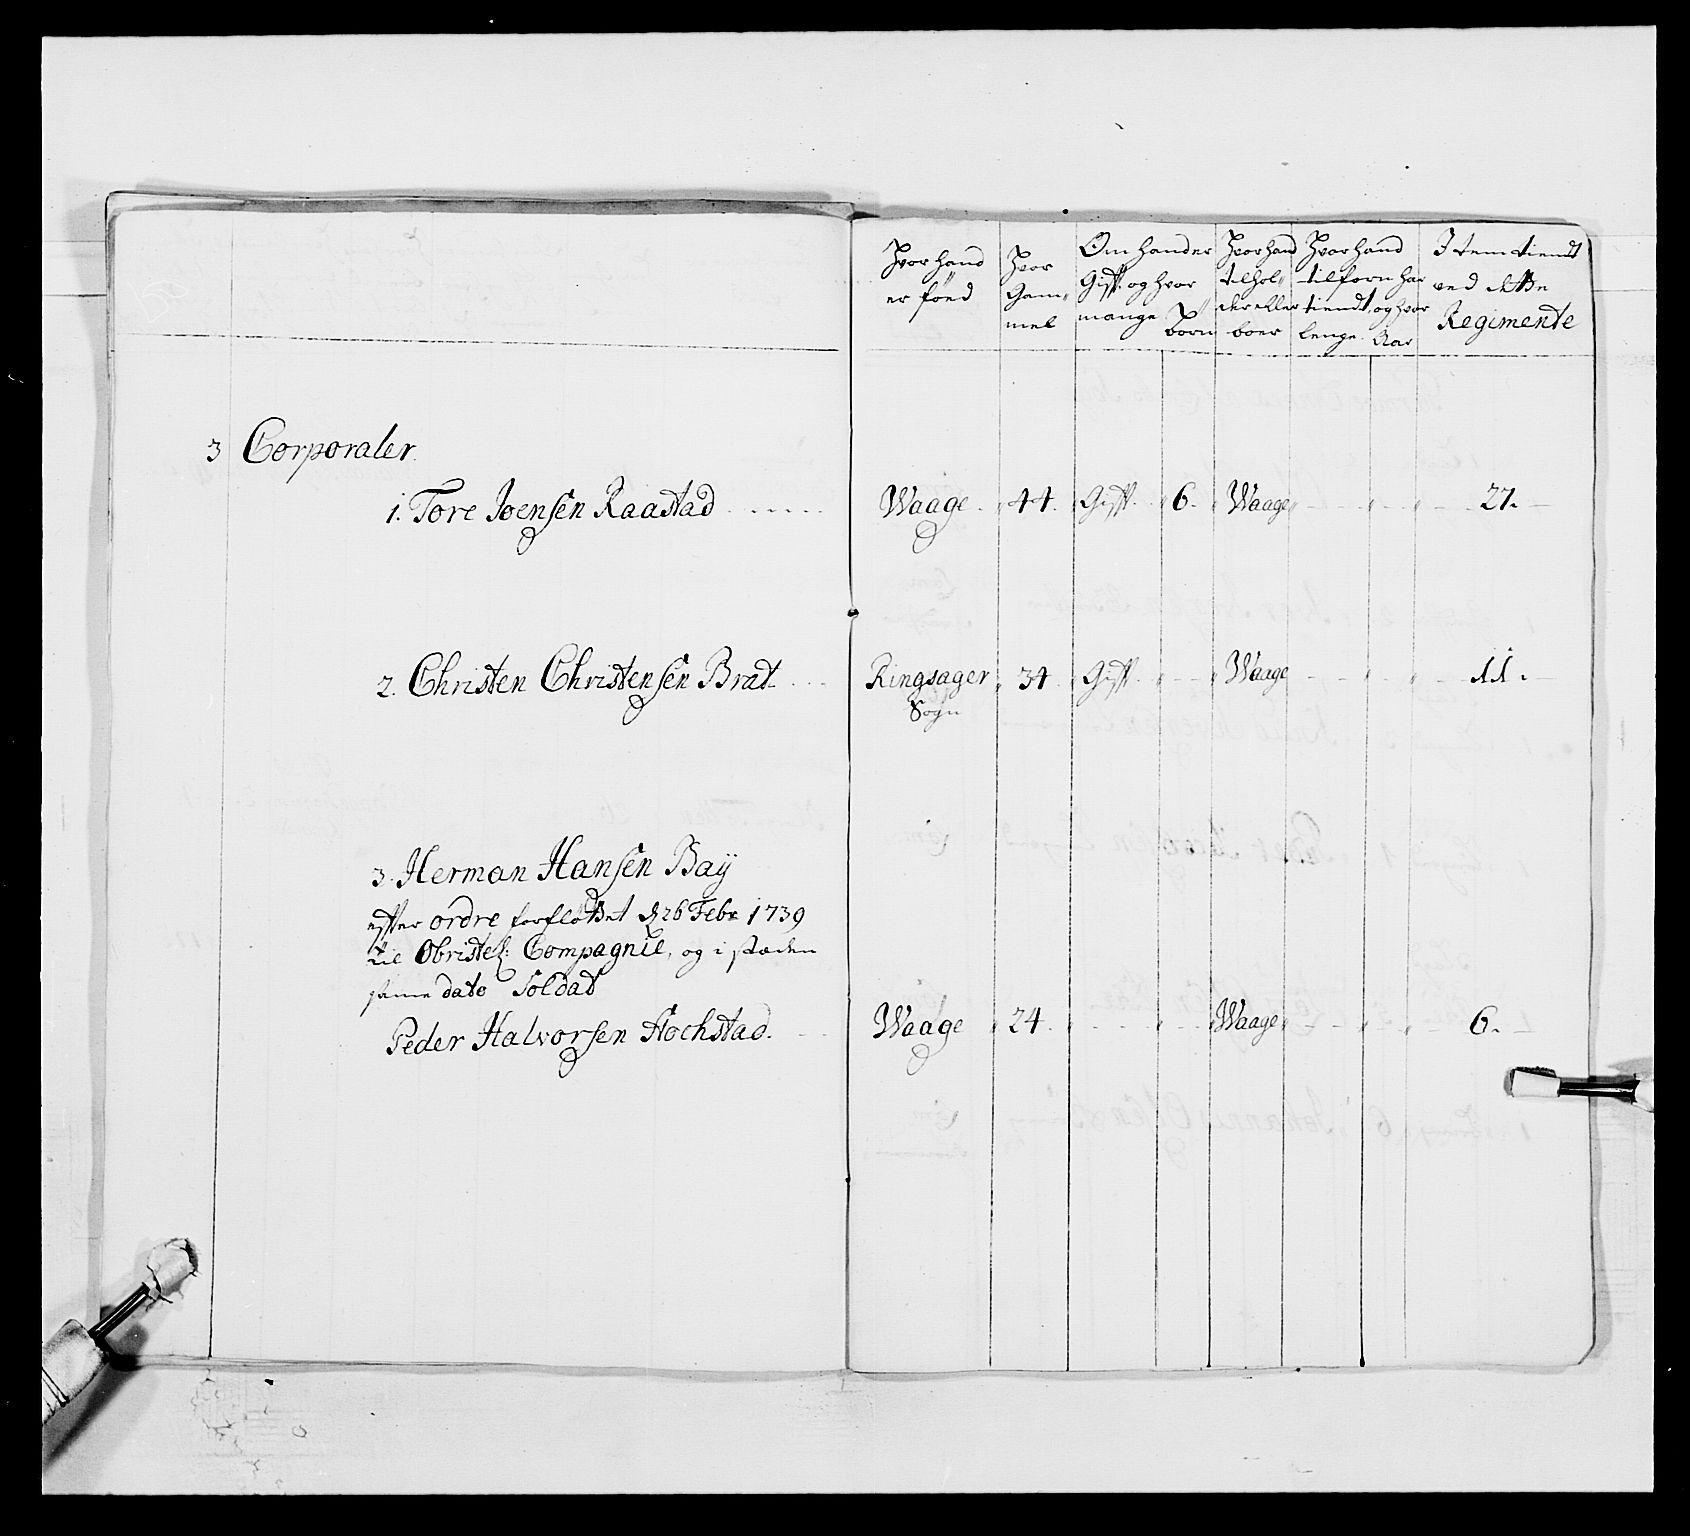 Hvor hand er föed
Hvor Gam¬mel
Om hand er Gift og hvor mange Börn
Hvor hand tilhol¬der eller boer
Hvor hand tilforn har tiendt, og hvor lenge. Aar
Item tiendt ved dette Regimente
3 Corporaler.
1. Tore Joensen Raastad Waage 44. Gift 6. Waage 27.
2. Christen Christensen Brat Ringsager Sogn 34 Gift Waage 11.
3. Herman Hansen Baÿ
efter ordre forfløttet d 26 Febr 1739
til Obristel: Compagnie, og i stæden
same dato Soldat
Peder Halvorsen Hochstad. Waage 24. Waage 6.